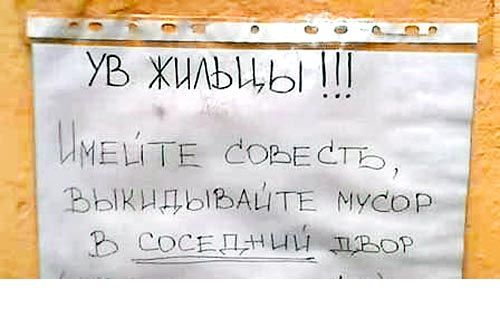 УВ ЖИЛЬЦЫ!!!
ИМЕЙТЕ СОВЕСТЬ,
ВЫКИДЫВАЙТЕ МУСОР
В СОСЕДНИЙ ДВОР